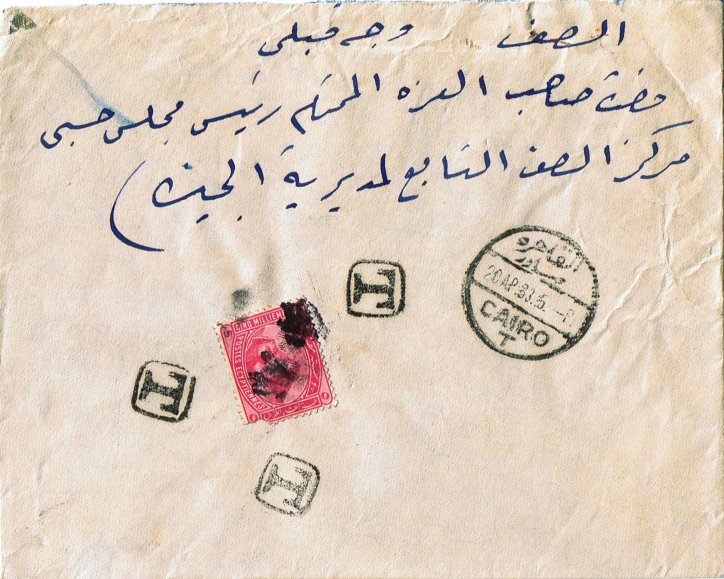 الصف وجه قبلى
حضرة صاحب العزه المحترم رئيس مجلس حسبى
مركز الصف التابع لمديرية الجيزة)
القاهره
صادر
20 AP 33.5 -
CAIRO
T
T
CINQ MILLIEM
POSTES EGYPTIENNES
5
T
T